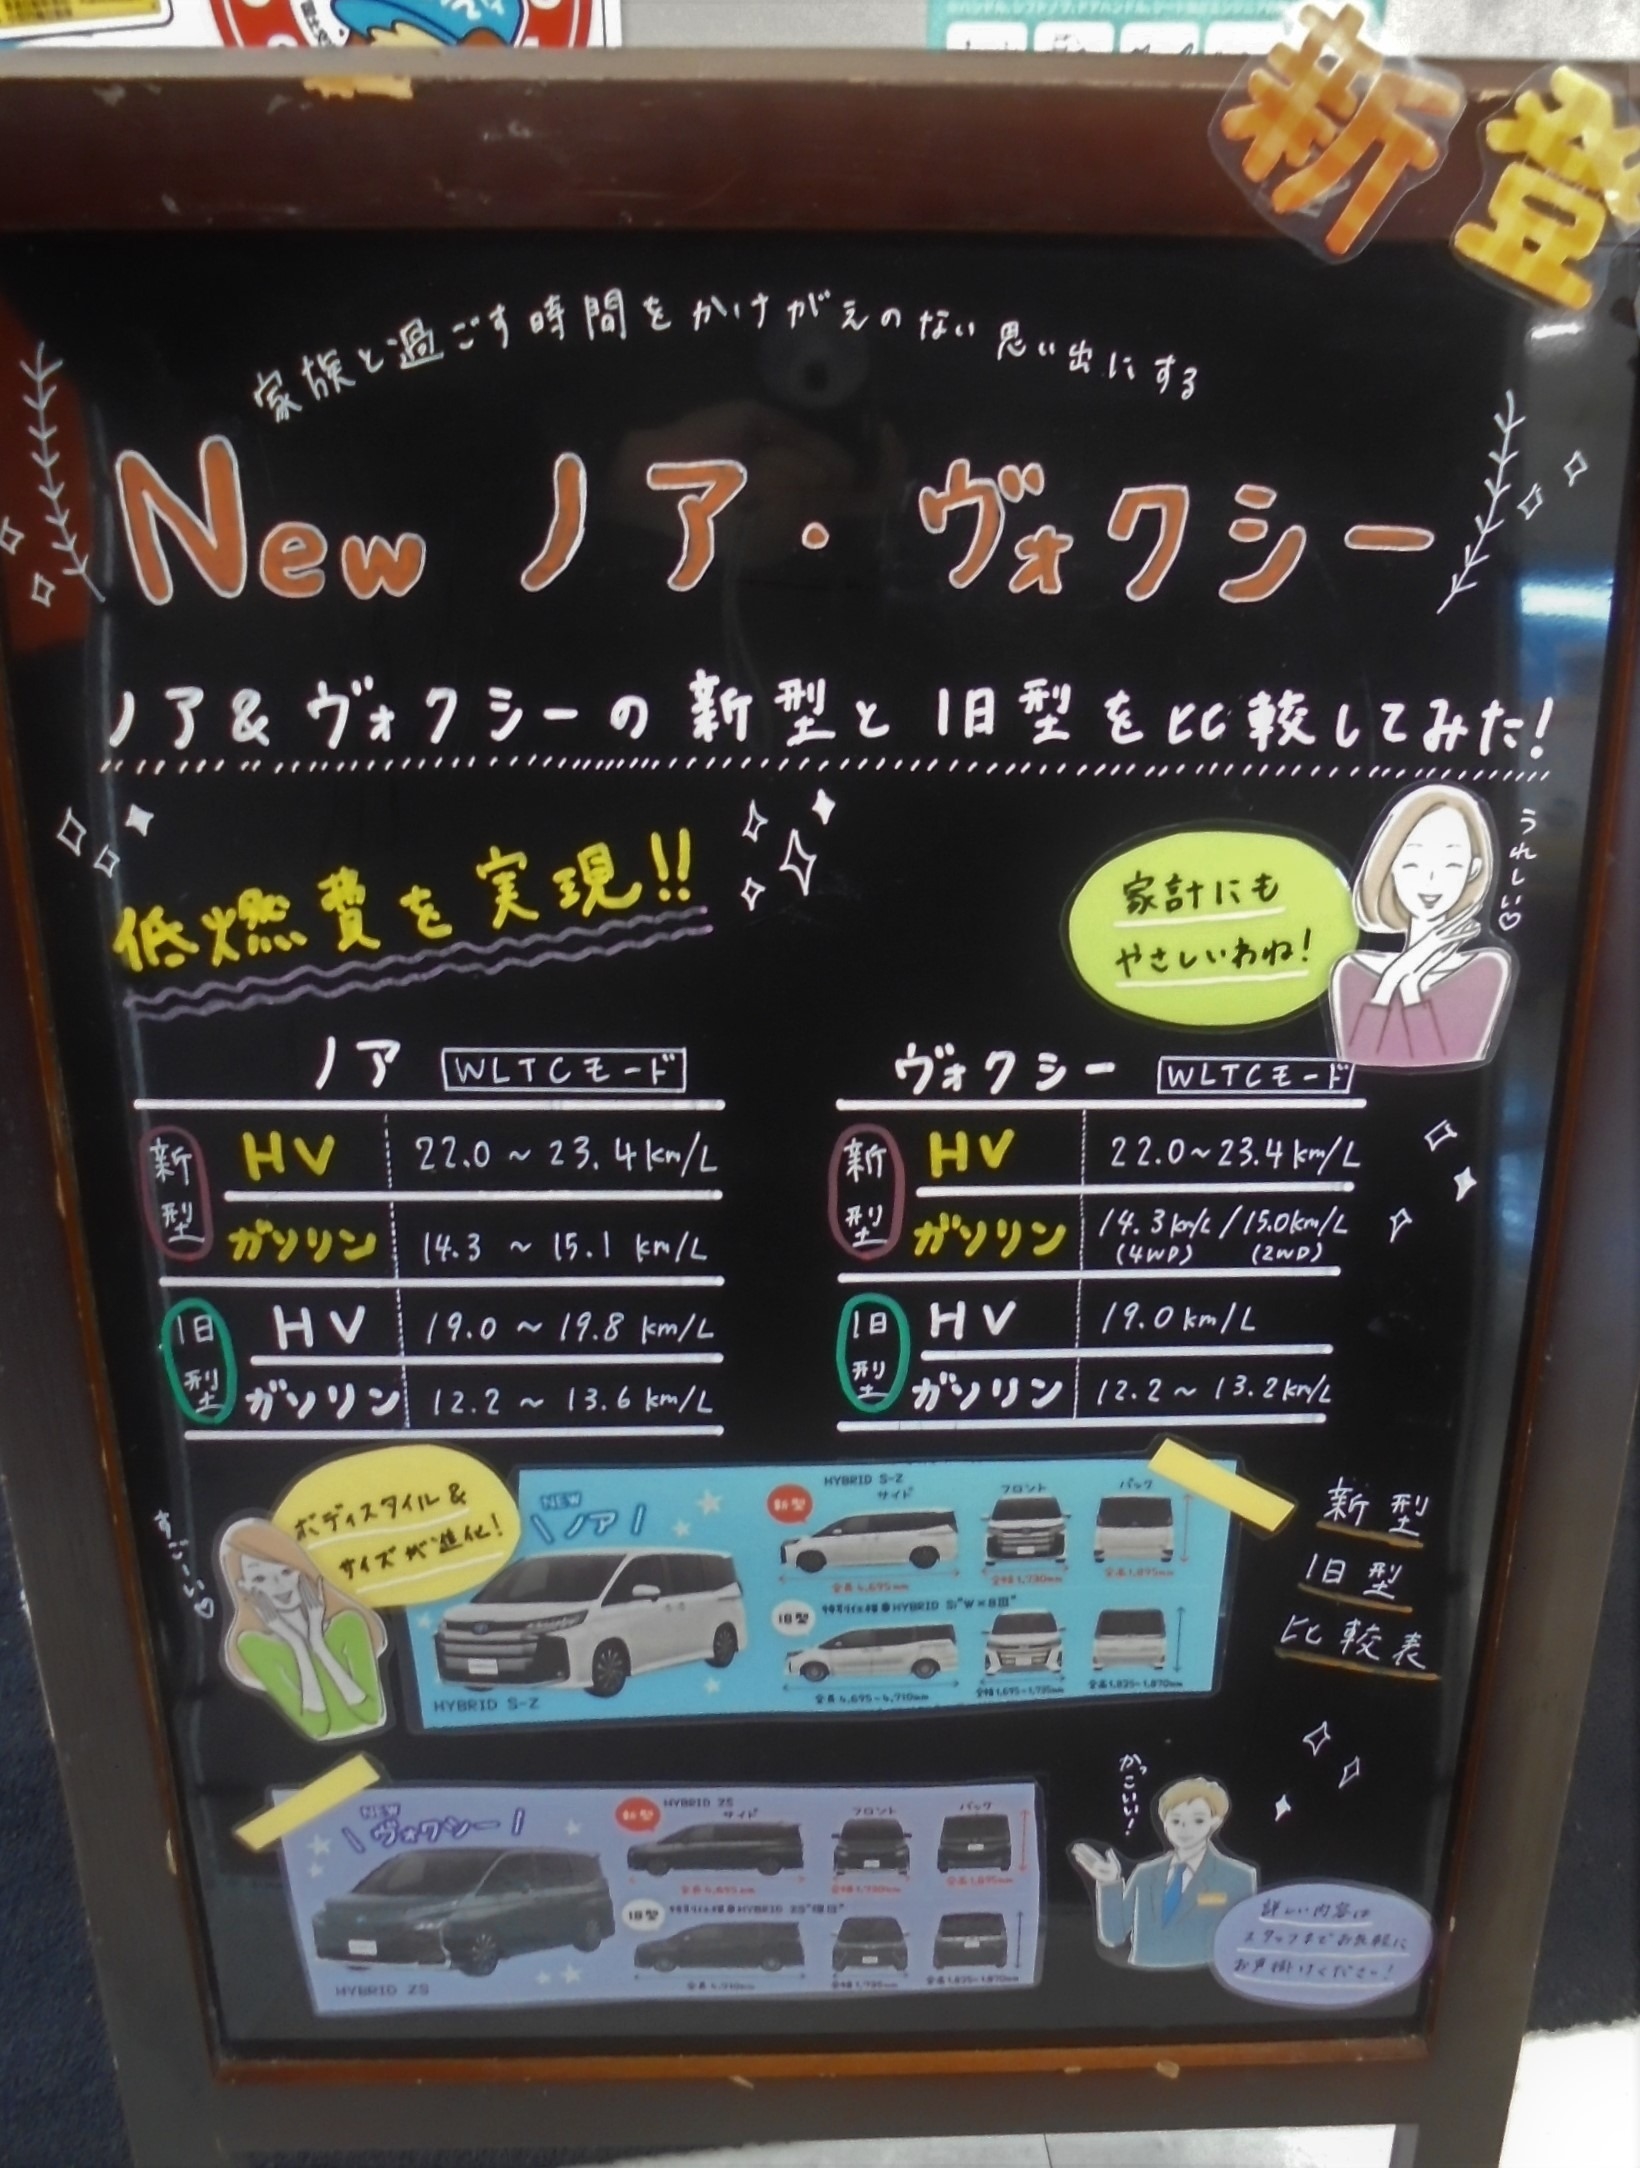 新登
家族と過ごす時間をかけがえのない思い出にする
New ノア・ヴォクシー
ノア&ヴォクシーの新型と旧型を比較してみた!
低燃費を実現!!
家計にも
やさしいわね!
うれしい♡
ノア WLTCモード
新型 HV 22.0~23.4km/L
ガソリン 14.3~15.1km/L
旧型 HV 19.0~19.8km/L
ガソリン 12.2~13.6km/L
ヴォクシー WLTCモード
新型 HV 22.0~23.4km/L
ガソリン 14.3km/L/15.0km/L
(4WD) (2WD)
旧型 HV 19.0km/L
ガソリン 12.2~13.2km/L
すご〜い♡
ボディスタイル&
サイズが進化!
NEW
\ノア/
HYBRID S-Z
新型 HYBRID S-Z
サイド フロント バック
全長4,695mm 全幅1,730mm 全高1,895mm
旧型
全長4,695~4,710mm 全幅1,695~1,735mm 全高1,825~1,870mm
新型
旧型
比較表
NEW
\ヴォクシー/
HYBRID ZS
新型 HYBRID ZS
サイド フロント バック
全長4,695mm 全幅1,730mm 全高1,895mm
旧型
かっこいい!
詳しい内容は
スタッフまでお気軽に
お声掛けくださ〜い!